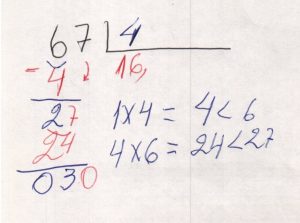 67 4
- 4 16,
27 1x4 = 4<6
24 4x6 = 24<27
030